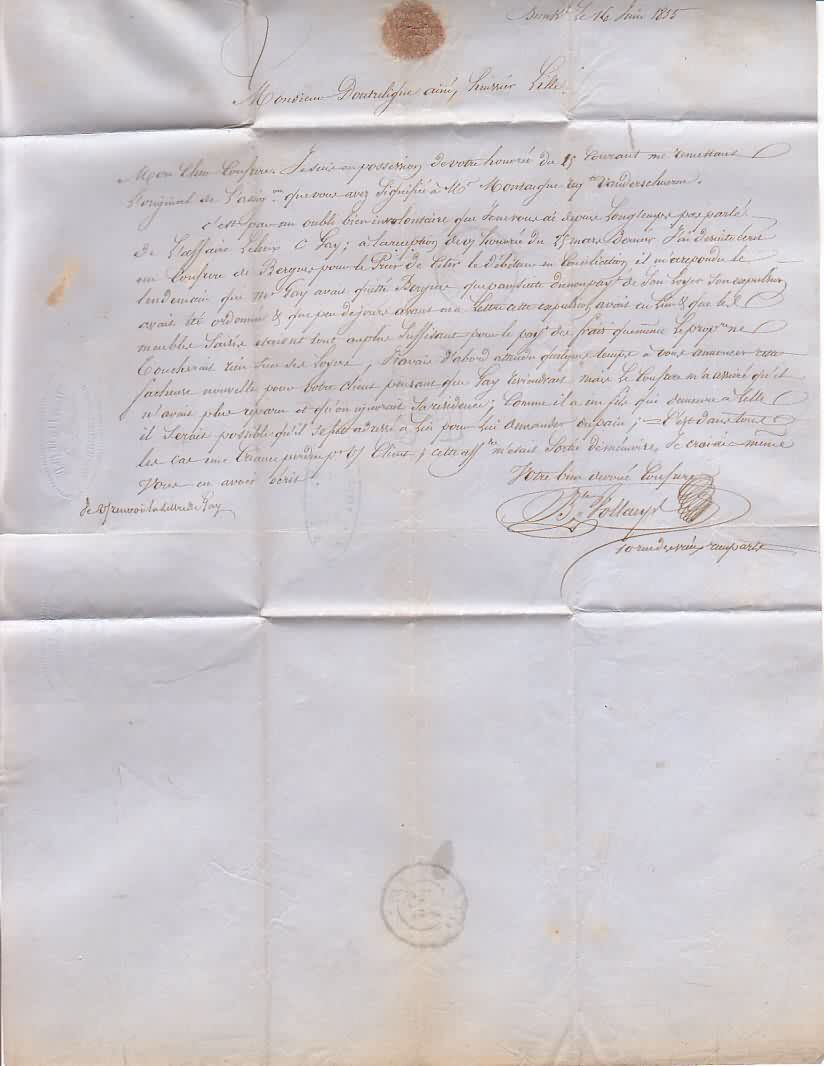 Dunk. le 16 Juin 1855
Monsieur Doutreligne ainé, huissier Lille.
Mon Cher Confrere. Je suis en possession de votre honorée du 15 Courant me remettant
l'original de que vous avez Signifié à Mr Montaigne Vanderschueren.
C'est par un oubli bien involontaire que Je ne vous ai encore longtemps pas parlé
De l'affaire C Gay; à la réception de v/ honorée du 25 mars Dernier J'ai de suite écrit
au Confrere de Bergues pour le Prier de Citer le Débiteur en Conciliation il m'a repondu le
lendemain que mr Gay avait quitté Bergues que par suite de non payt de Son Loyer Son expulsion
avait été ordonnée & que peu de jours avant ma Lettre cette expulsion avait eu lieu & que les
meubles Saisis etaient tout au plus Suffisant pour le payt des frais que même le propre ne
Toucherait rien Sur Ses loyers, J'avais d'abord attendu quelque temps à vous annoncer cette
facheuse nouvelle pour Votre Client pensant que Gay reviendrait mais le Confrere m'a assuré qu'il
n'avait plus reparu et qu'on ignorait Sa residence; Comme il a un fils qui demeure à Lille
il Serait possible qu'il Se fut adressé à lui pour lui demander du pain; C'est dans tous
les cas une Créance perdue pr v/ Client; cette affre m'était Sortie de mémoire, Je croiais même
Vous en avoir écrit
Votre bien devoué Confrere
Je v/ renvoi la lettre de Gay
Bte Vollaeys
10 rue des vieux remparts